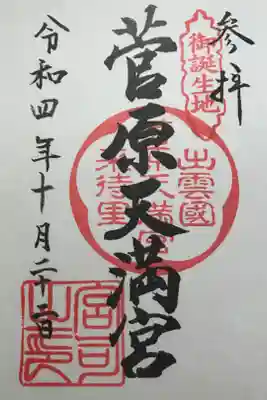 参拝
御誕生地
菅原天満宮
出雲國
菅原天満宮
来待里
令和四年十月二十二日
宮司之印